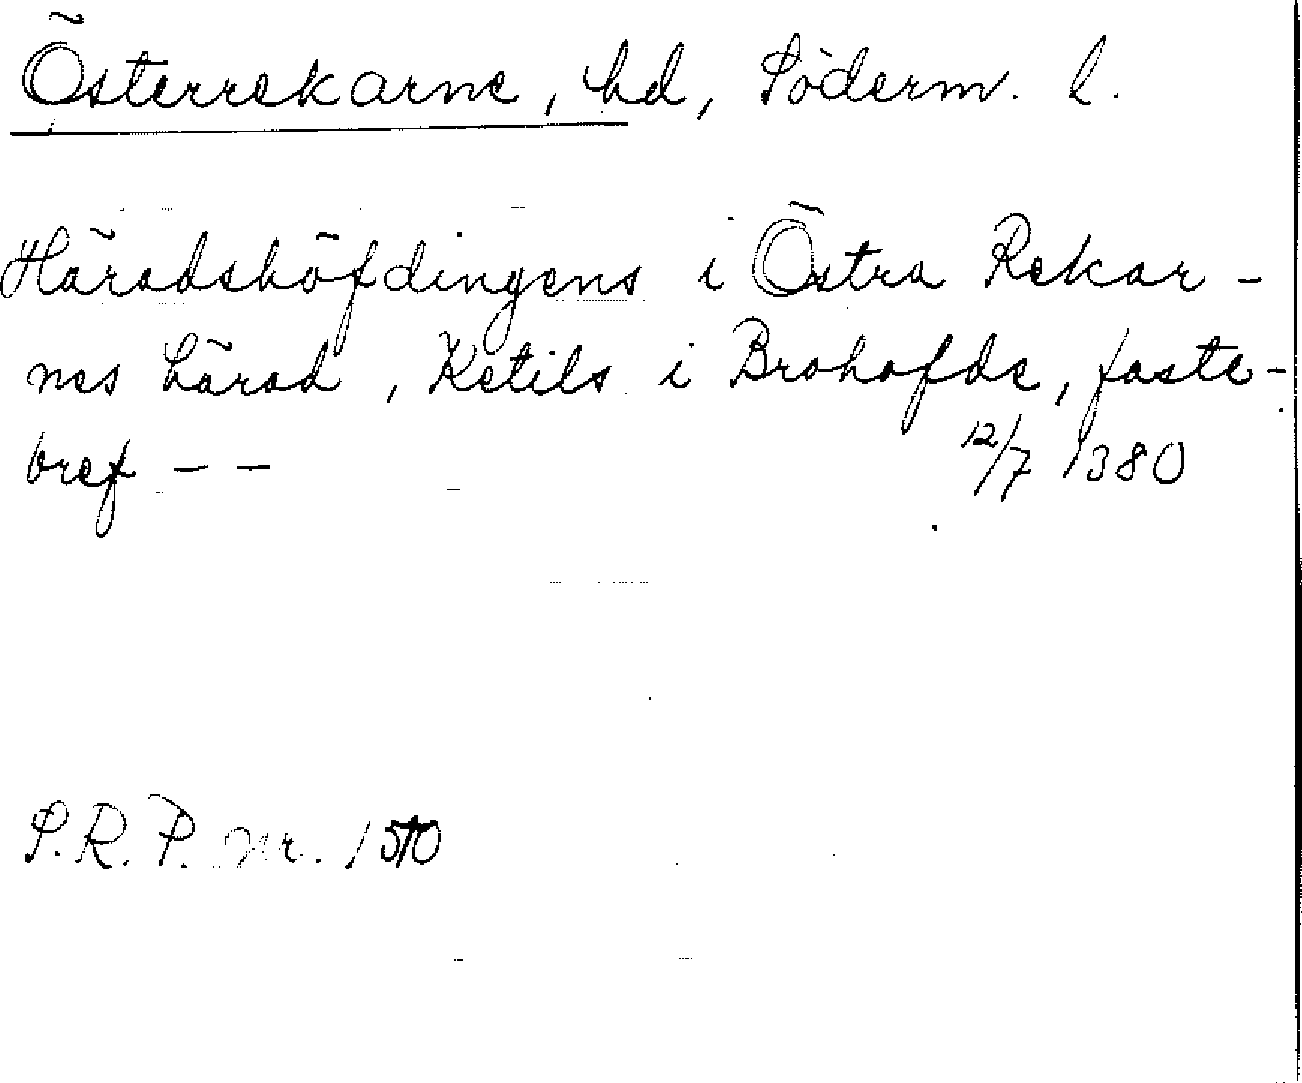 Österrekarne, hd, Söderm. l.
Häradshöfdingens i Östra Rekar-
nes härad, Ketils i Brohofde, faste-
bref - - 12/7 1380
S.R.P. Nr.